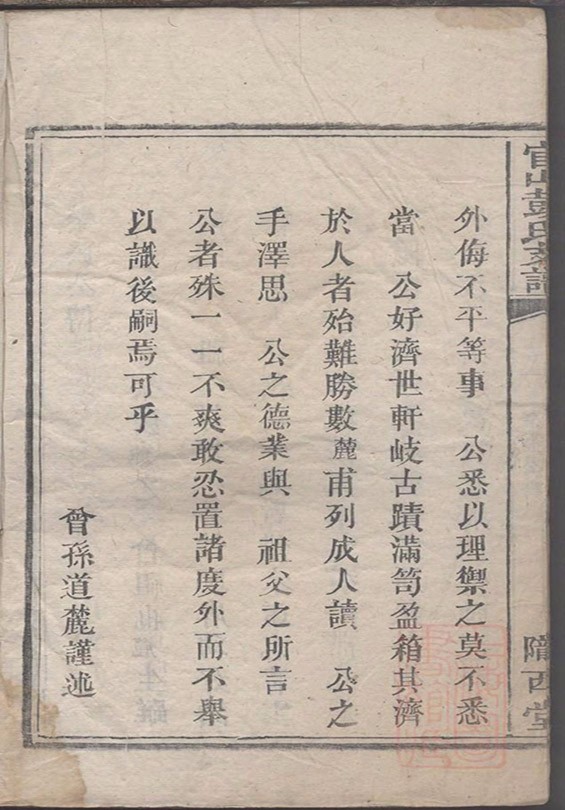 官山彭氏支譜
隴西堂
外侮不平等事　公悉以理禦之莫不悉
當　公好濟世軒岐古蹟滿笥盈箱其濟
於人者殆難勝數麓甫列成人讀　公之
手澤思　公之德業與　祖父之所言
公者殊一一不爽敢忍置諸度外而不舉
以識後嗣焉可乎
曾孫道麓謹述